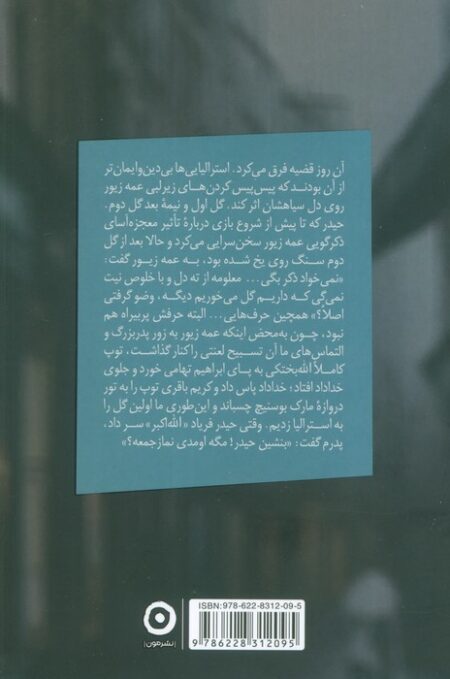 آن روز قضیه فرق می‌کرد. استرالیایی‌ها بی‌دین‌وایمان‌تر
از آن بودند که پیس‌پیس کردن‌های زیرلبی عمه زیور
روی دل سیاهشان اثر کند. گل اول و نیمهٔ بعد گل دوم.
حیدر که تا پیش از شروع بازی دربارهٔ تأثیر معجزه‌آسای
ذکرگویی عمه زیور سخن‌سرایی می‌کرد و حالا بعد از گل
دوم سنگ روی یخ شده بود، به عمه زیور گفت:
«نمی‌خواد ذکر بگی... معلومه از ته دل و با خلوص نیت
نمی‌گی که داریم گل می‌خوریم دیگه، وضو گرفتی
اصلاً؟» همچین حرف‌هایی... البته حرفش پربیراه هم
نبود، چون به‌محض اینکه عمه زیور به زور پدربزرگ و
التماس‌های ما آن تسبیح لعنتی را کنار گذاشت، توپ
کاملاً الله‌بختکی به پای ابراهیم تهامی خورد و جلوی
خداداد افتاد؛ خداداد پاس داد و کریم باقری توپ را به تور
دروازهٔ مارک بوسنیچ چسباند و این‌طوری ما اولین گل را
به استرالیا زدیم. وقتی حیدر فریاد «الله‌اکبر» سر داد،
پدرم گفت: «بنشین حیدر! مگه اومدی نماز جمعه؟»
ISBN: 978-622-8312-09-5
9 786228 312095
|نشر مون|